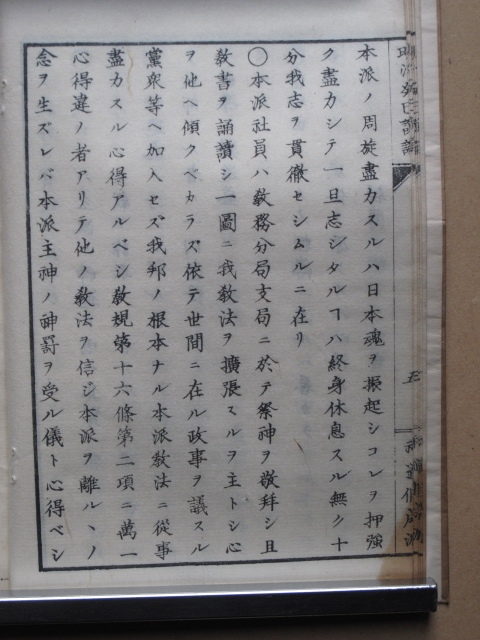 本派ノ周旋盡力スルハ日本魂ヲ振起シコレヲ押強
ク盡力シテ一旦志シタルヿハ終身休息スル無ク十
分我志ヲ貫徹セシムルニ在リ
〇本派社員ハ敎務分局支局ニ於テ祭神ヲ敬拜シ且
敎書ヲ誦讀シ一圖ニ我敎法ヲ擴張スルヲ主トシ心
ヲ他ヘ傾クベカラズ依テ世間ニ在ル政事ヲ議スル
黨衆等ヘ加入セズ我邦ノ根本ナル本派敎法ニ從事
盡力スル心得アルベシ敎規第十六條第二項ニ萬一
心得違ノ者アリテ他ノ敎法ヲ信ジ本派ヲ離ルヽノ
念ヲ生ズレバ本派主神ノ神罰ヲ受ル儀ト心得ベシ
五